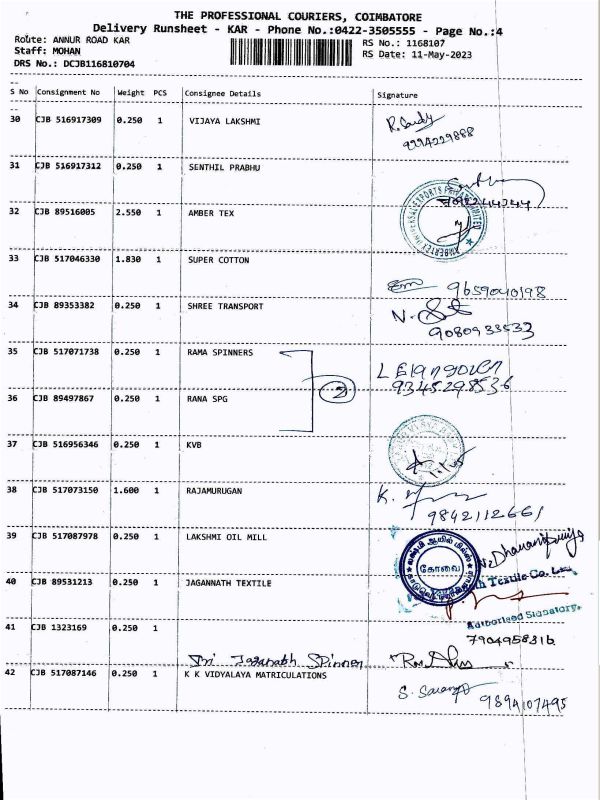 THE PROFESSIONAL COURIERS, COIMBATORE
Delivery Runsheet - KAR - Phone No.:0422-3505555 - Page No.:4
Route: ANNUR ROAD KAR RS No.: 1168107
Staff: MOHAN RS Date: 11-May-2023
DRS No.: DCJB116810704
S No Consignment No Weight PCS Consignee Details Signature
30 CJB 516917309 0.250 1 VIJAYA LAKSHMI R. Sandy
9994229888
31 CJB 516917312 0.250 1 SENTHIL PRABHU
32 CJB 89516005 2.550 1 AMBER TEX
33 CJB 517046330 1.830 1 SUPER COTTON
9659040198
34 CJB 89353382 0.250 1 SHREE TRANSPORT N.
9080933533
35 CJB 517071738 0.250 1 RAMA SPINNERS L Elangovan
9345298536
2
36 CJB 89497867 0.250 1 RANA SPG
37 CJB 516956346 0.250 1 KVB
38 CJB 517073150 1.600 1 RAJAMURUGAN K.
9842112661
39 CJB 517087978 0.250 1 LAKSHMI OIL MILL
கோவை
40 CJB 89531213 0.250 1 JAGANNATH TEXTILE
Textile Co.
Authorised Signatory.
790495831b
41 CJB 1323169 0.250 1
Sri Jagannath Spinner
42 CJB 517087146 0.250 1 K K VIDYALAYA MATRICULATIONS
9894107495